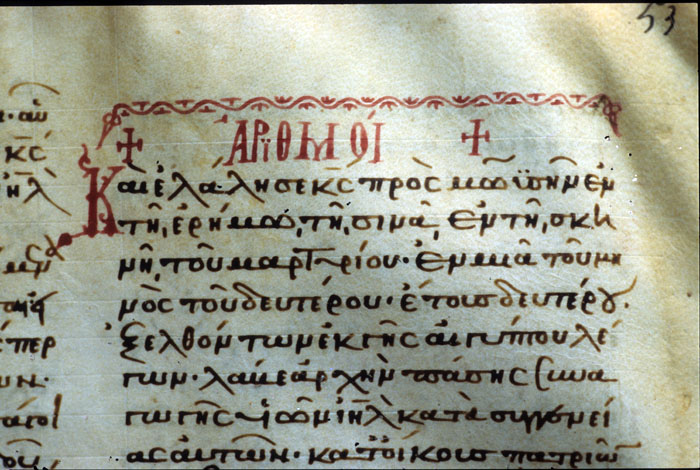 53
+ ἈΡΙΘΜΟΊ +
Καὶ ἐλάλησε κς πρὸς μωϋσῆν ἐν
τῆ, ἐρήμω, τῆ, σινᾶ, ἐν τῆ, σκη
νῆ, τοῦ μαρτυρίου· ἐν μιᾶ τοῦ μη
νὸς τοῦ δευτέρου· ἔτους δευτέρου·
ἐξελθόντων ἐκ γῆς αἰγύπτου λέ
γων· λάβε ἀρχὴν πάσης συνα
γωγῆς υἱῶν ιηλ κατὰ συγγενεί
ας αὐτῶν· κατ οἴκους πατριῶν